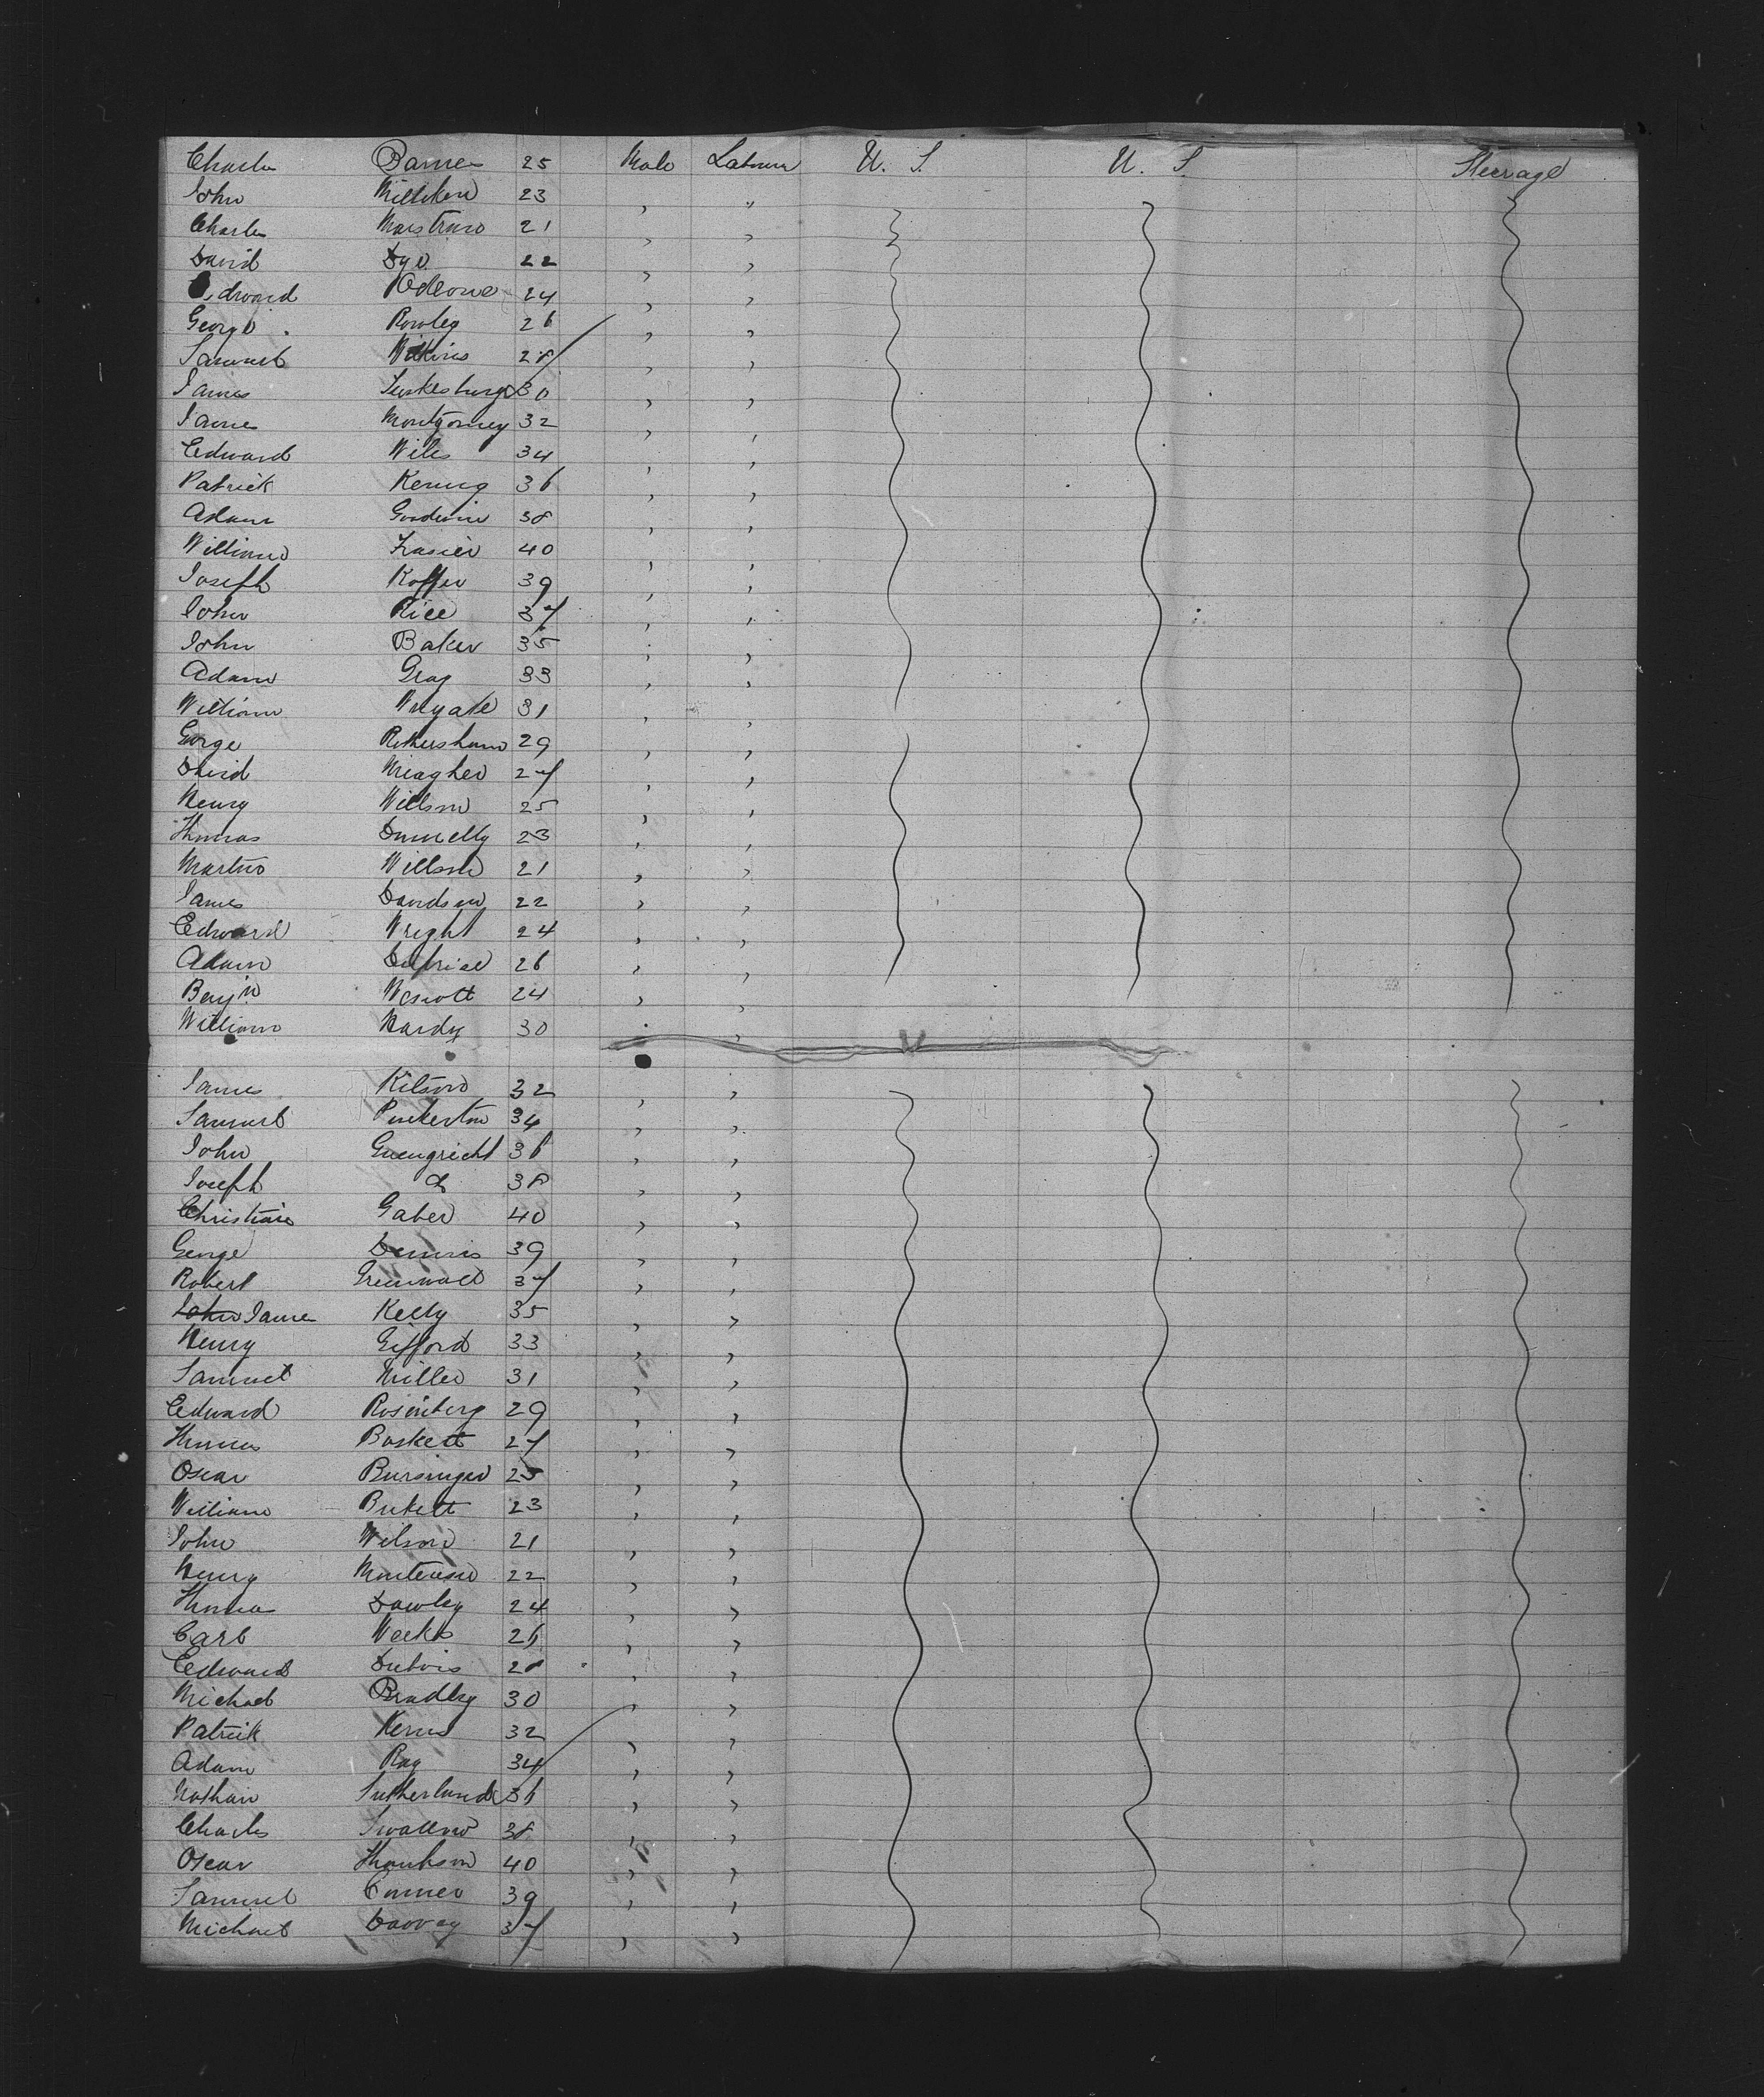 Charles Barnes 25 Male Laborer U. S. U. S. Steerage
John Milliken 23 " "
Charles 21 " "
David Dye 22 " "
Edward 24 " "
George Rowley 26 " "
Samuel Wilkins 28 " "
James 30 " "
James Montgomery 32 " "
Edward Wiles 34 " "
Patrick Kenny 36 " "
Adam Goodwin 38 " "
William Frasier 40 " "
Joseph Koffer 39 " "
John Rice 37 " "
John Baker 35 " "
Adam Gray 33 " "
William 31 " "
Gorge Rothersham 29 " "
David Meagher 27 " "
Henry Willson 25 " "
Thomas Donnelly 23 " "
Martin Willson 21 " "
James Davidson 22 " "
Edward Wright 24 " "
Adam 26 " "
Benj'n Wescott 24 " "
William Hardy 30 " "
James Kitson 32 " "
Samuel Pinkerton 34 " "
John 36 " "
Joseph 38 " "
Christian Gaber 40 " "
George Dennis 39 " "
Robert Greenwald 37 " "
John James Kelly 35 " "
Henry Gifford 33 " "
Samuel Miller 31 " "
Edward Rosenberg 29 " "
Thomas Baskett 27 " "
Oscar Bursinger 25 " "
William 23 " "
John Wilson 21 " "
Henry 22 " "
Thomas Dawley 24 " "
Carl Weeks 26 " "
Edward Dubois 28 " "
Michael Bradley 30 " "
Patrick Kerns 32 " "
Adam Ray 34 " "
Nathan Sutherland 36 " "
Charles Swallow 38 " "
Oscar Thompson 40 " "
Samuel Conner 39 " "
Michael 37 " "